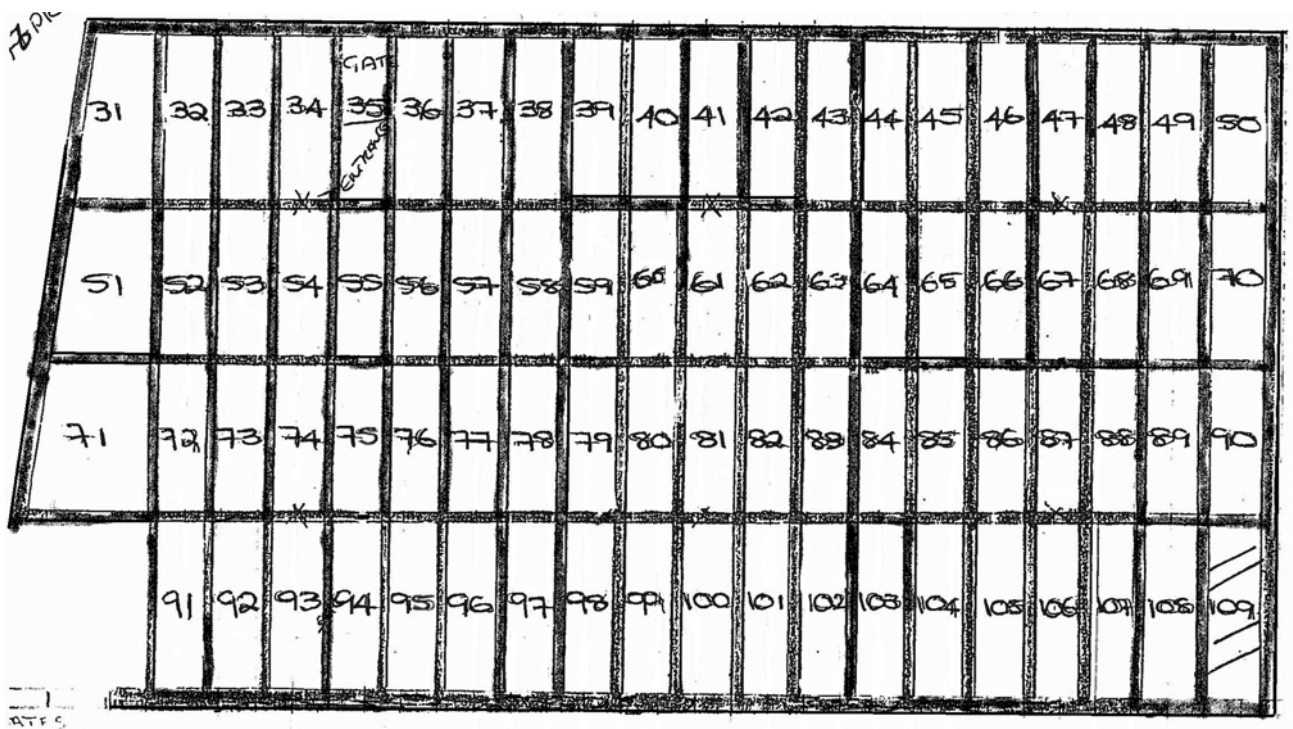 GATE
31 32 33 34 35 36 37 38 39 40 41 42 43 44 45 46 47 48 49 50
ENTRANCE
51 52 53 54 55 56 57 58 59 60 61 62 63 64 65 66 67 68 69 70
71 72 73 74 75 76 77 78 79 80 81 82 83 84 85 86 87 88 89 90
91 92 93 94 95 96 97 98 99 100 101 102 103 104 105 106 107 108 109